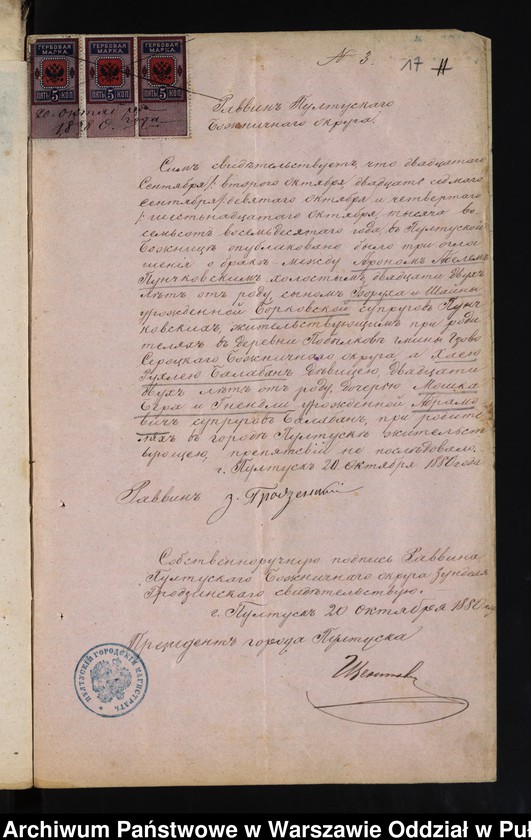 ГЕРБОВАЯ МАРКА. ГЕРБОВАЯ МАРКА. ГЕРБОВАЯ МАРКА.
ПЯТЬ 5 КОП. ПЯТЬ 5 КОП. ПЯТЬ 5 КОП.
20 октября
1880 года
N 3.
17
Раввинъ Пултускаго
Божничнаго округа.
Симъ свидѣтельствуетъ, что двадцатаго
Сентября /: второго Октября, двадцать седмаго
сентября /: девятаго октября и четвертаго
/: шестьнадцатаго октября, тысяча во
семьсотъ восемьдесятаго года, въ Пултуской
Божницѣ опубликовано было три огло
шенія о бракѣ между Арономъ
Пунчковскимъ холостымъ, двадцати двухъ
лѣтъ отъ роду, сыномъ Боруха и Шайны
урожденной Борковской супруговъ Пунч
ковскихъ, жительствующимъ при роди
теляхъ въ деревни гмины
Сероцкаго Божничнаго округа, и Хаею
Рухлею Балабанъ дѣвицею, двадцати
двухъ лѣтъ отъ роду, дочерью Мошка
Бера и Гнендли урожденной Абрамо
вичъ супруговъ Балабанъ, при родите
ляхъ въ городѣ Пултускѣ жительст
вующею, препятствій не послѣдовало.
г. Пултускъ 20 Октября 1880 года
Раввинъ З. Гродзенскій
Собственноручную подпись Раввина
Пултускаго Божничнаго округа Зунделя
Гродзинскаго свидѣтельствую.
г. Пултускъ 20 октября 1880 года
Президентъ города Пултуска
ПУЛТУСКІЙ ГОРОДСКІЙ МАГИСТРАТЪ
Archiwum Państwowe w Warszawie Oddział w Puł